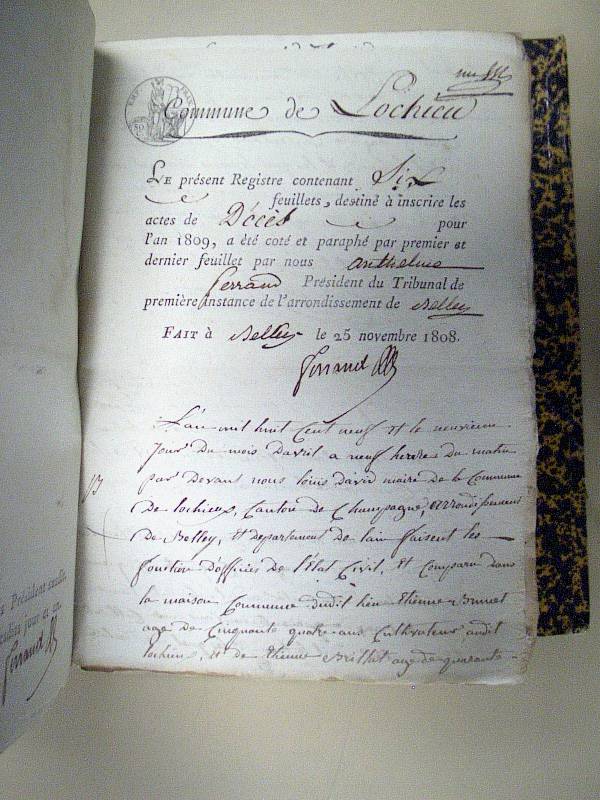 Commune de Lochieu
Le présent Registre contenant Six
feuillets, destiné à inscrire les
actes de Décès pour
l'an 1809, a été coté et paraphé par premier et
dernier feuillet par nous anthelme
ferrand Président du Tribunal de
première instance de l'arrondissement de Belley
Fait à Belley le 25 novembre 1808.
ferrand
L'an mil huit Cent neuf et le neuvieme
Jour du mois davril a neuf heures du matin
par Devant nous louis david maire de la Commune
De lochieu, Canton de Champagne, arrondissement
de Belley, et departement De lain faisent les
fonction d'officier de l'état Civil, et Comparu dans
la maison Commune dudit lieu Etienne
age de Cinquante quatre ans Cultivateur audit
lochieu, et de Etienne Brillat age de quarante
Président
ferrand